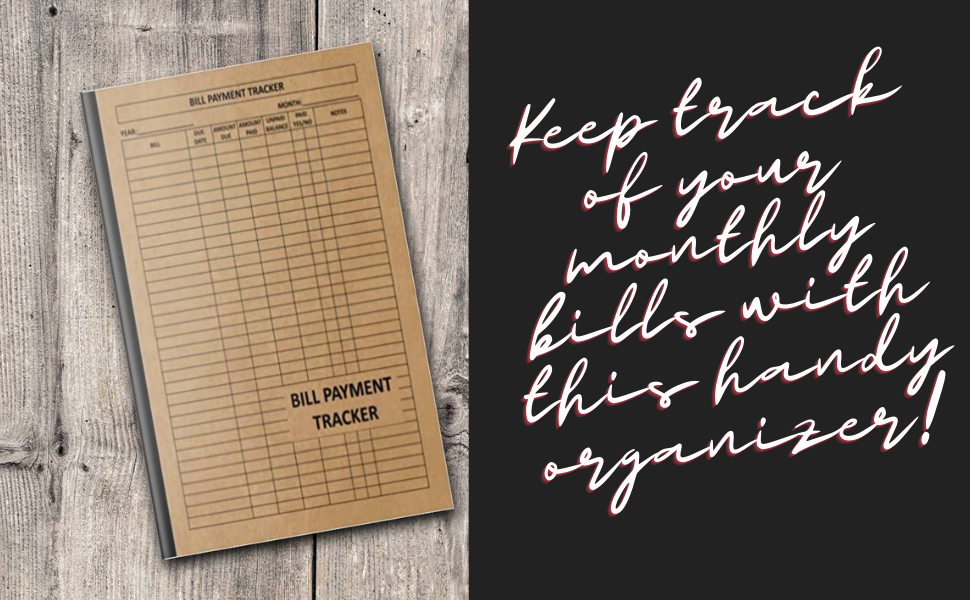 BILL PAYMENT TRACKER
MONTH:
YEAR:
BILL
DUE DATE
AMOUNT DUE
AMOUNT PAID
UNPAID BALANCE
PAID YES/NO
NOTES
BILL PAYMENT
TRACKER
Keep track
of your
monthly
bills with
this handy
organizer!